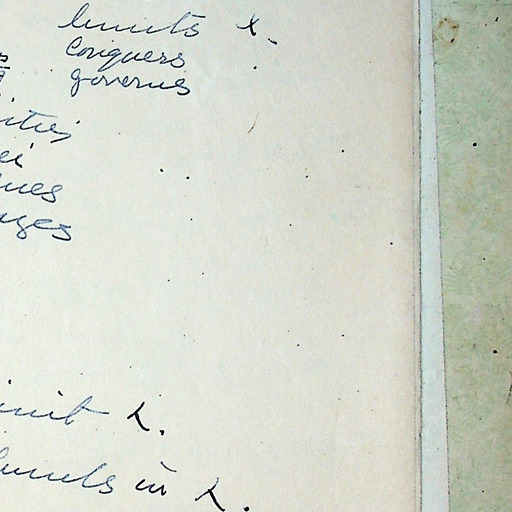 limits x.
Conquers
governs
ities
ei
ques
uges
imit L.
limits in L.